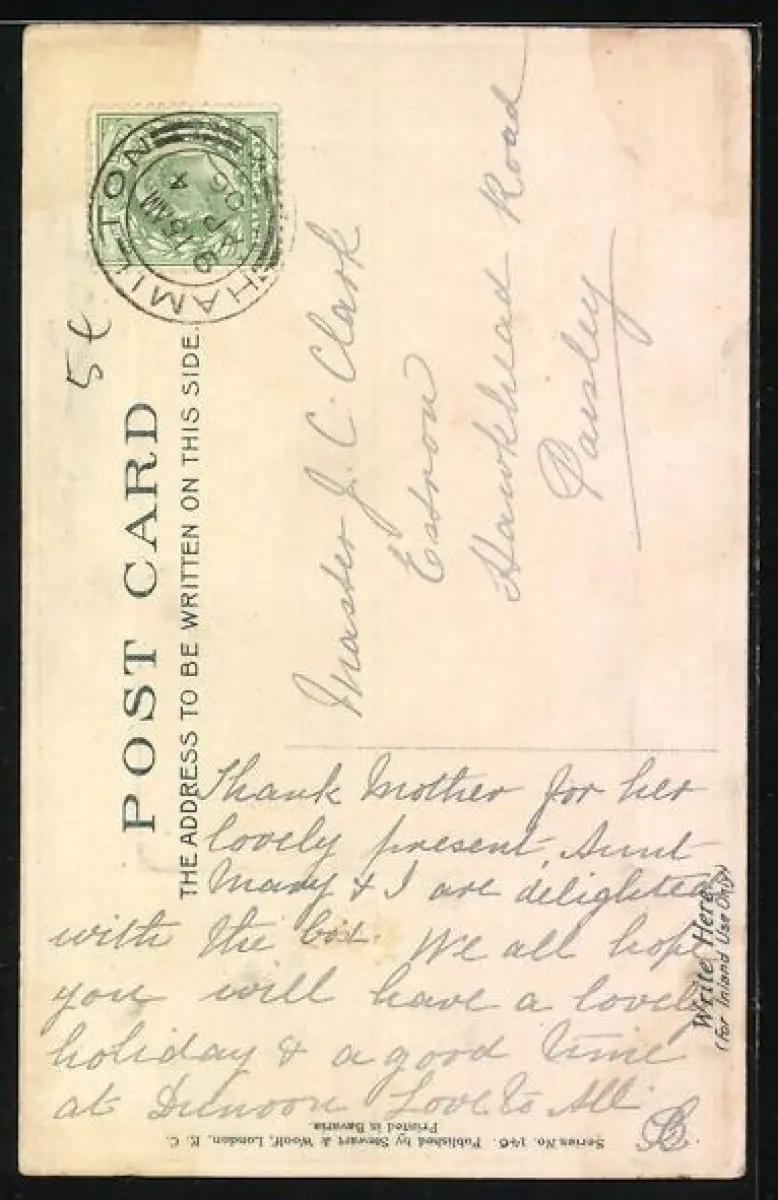 HAMILTON
9 15 AM
AP 4
06
5¢
POST CARD
THE ADDRESS TO BE WRITTEN ON THIS SIDE.
Master J. C. Clark
Hawkhead Road
Paisley
Thank Mother for her
lovely present, Aunt
Mary & I are delighted
with the box. We all hope
you will have a lovely
holiday & a good time
at Dunoon Love to All
Write Here
(For Inland Use Only)
Series No. 146. Published by Stewart & Woolf, London, E. C.
Printed in Bavaria.